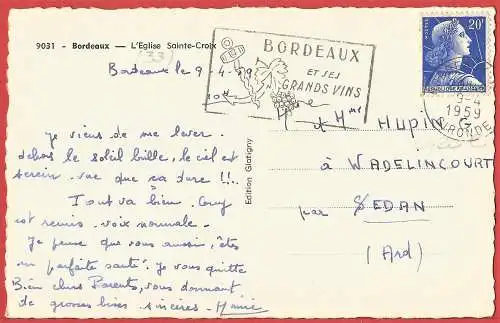 9031 - Bordeaux — L'Eglise Sainte-Croix
(33)
Bordeaux le 9-4-59
BORDEAUX
ET SES
GRANDS VINS
20F
9-4
1959
GIRONDE
Je viens de me lever.
dehors le soleil brille, le ciel est
serein. vue que ça dure !!.
Tout va bien. Coup
est remis. voix normale.
Je pense que vous aussi, êtes
en parfaite santé. Je vous quitte
Bien chers Parents, vous donnant
de grosses bises sincères.
Edition Glatigny
Mme HUPIN G.
à WADELINCOURT
par SEDAN
(Ard)